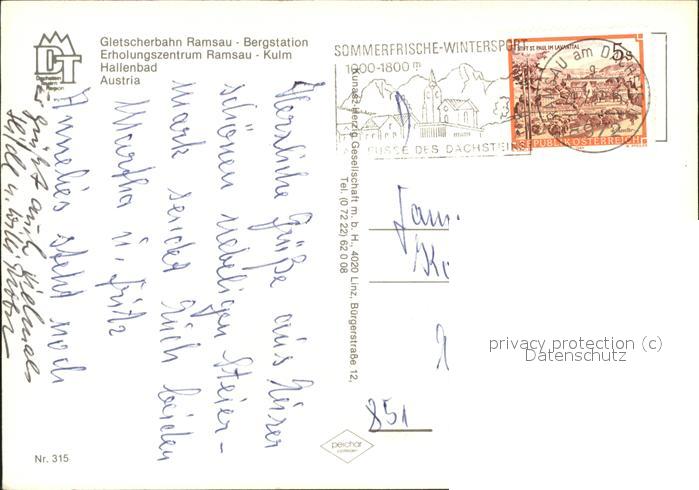 DT
Dachstein
Tauern
Region
Gletscherbahn Ramsau - Bergstation
Erholungszentrum Ramsau - Kulm
Hallenbad
Austria
Herzliche Grüße aus dieser
schönen nebeligen Steier-
mark sendet Euch beiden
Martha u. Fritz
Annelies steht noch
es grüßt auch vielmals
u. Willi
Nr. 315
peichar
Kunaas-Herzig Gesellschaft m. b. H., 4020 Linz, Bürgerstraße 12,
Tel. (0 72 22) 62 0 08
SOMMERFRISCHE-WINTERSPORT
1000-1800 m
FUSSE DES DACHSTEINS
RAMSAU am D
STIFT ST. PAUL IM LAVANTTAL
5s
REPUBLIK ÖSTERREICH
Fam.
851
privacy protection (c)
Datenschutz